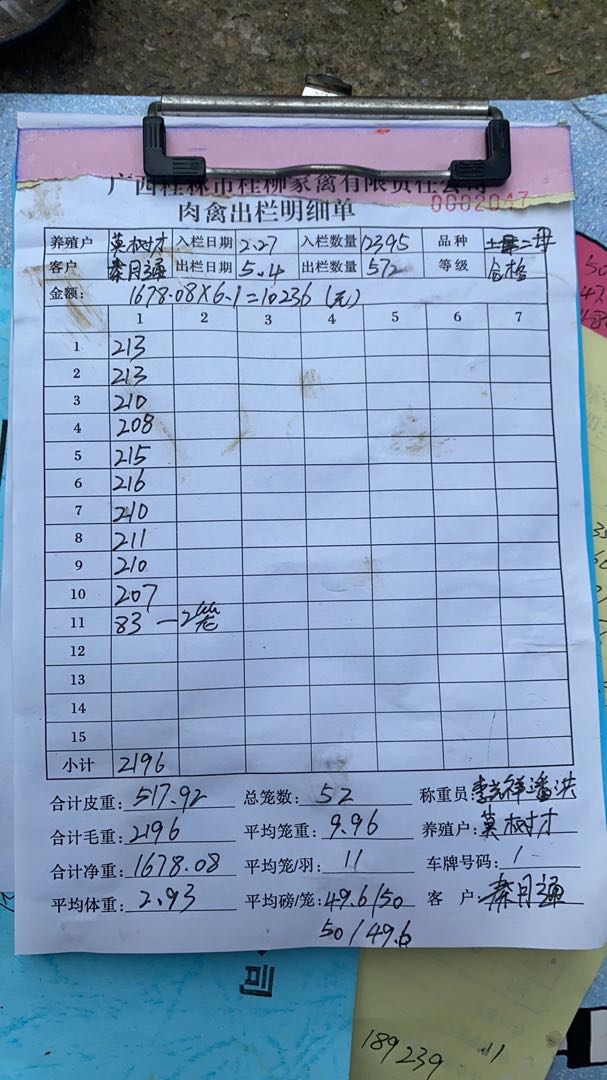 广西桂林市桂柳家禽有限责任公司
肉禽出栏明细单 0002047
养殖户 莫树才 入栏日期 2.27 入栏数量 12395 品种 土二号
客户 秦月通 出栏日期 5.4 出栏数量 572 等级 合格
金额: 1678.08×6.1=10236(元)
1 2 3 4 5 6 7
1 213
2 213
3 210
4 208
5 215
6 216
7 210
8 211
9 210
10 207
11 83 —2笼
12
13
14
15
小计 2196
合计皮重: 517.92 总笼数: 52 称重员: 潘洪
合计毛重: 2196 平均笼重: 9.96 养殖户: 莫树才
合计净重: 1678.08 平均笼/羽: 11 车牌号码: 1
平均体重: 2.93 平均磅/笼: 49.6/50 客 户: 秦月通
50/49.6
司
189239 11